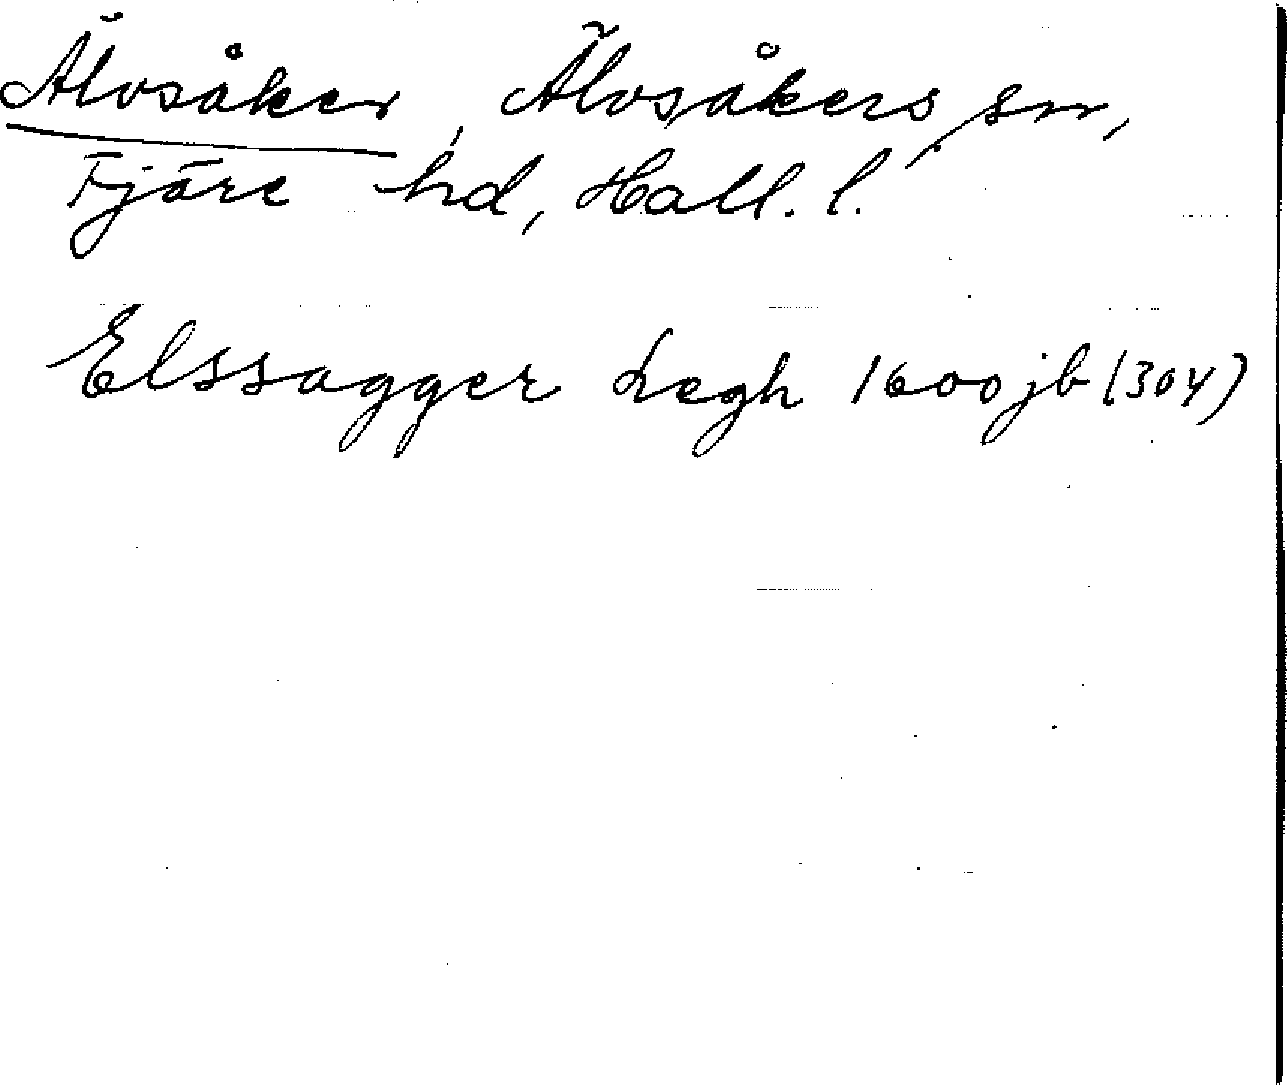 Älvsåker, Älvsåkers sn,
Fjäre hd, Hall. l.
Elssagger Lægh 1600 jb (304)